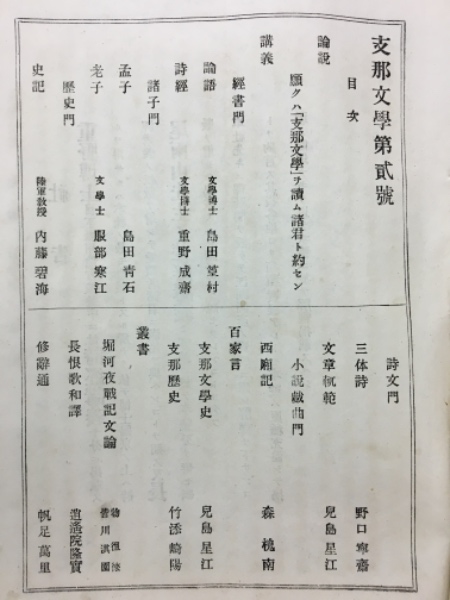 支那文學第貳號
目次
論説
願クハ「支那文學」ヲ讀ム諸君ト約セン
講義
經書門
論語 文學博士 島田篁村
詩經 文學博士 重野成齋
諸子門
孟子 島田青石
老子 文學士 服部寒江
歴史門
史記 陸軍敎授 內藤碧海
詩文門
三体詩 野口寧齋
文章軌範 兒島星江
小說戯曲門
西廂記 森槐南
百家言
支那文學史 兒島星江
支那歷史 竹添崎陽
叢書
堀河夜戰記文論 物徂徠 皆川淇園
長恨歌和譯 逍遙院隆實
修辭通 帆足萬里